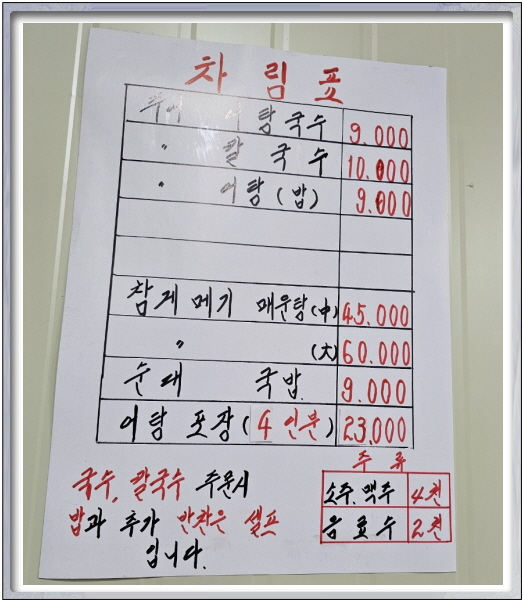 차림표
어탕국수 9.000
〃 칼국수 10.000
〃 어탕(밥) 9.000
참게메기 매운탕(中) 45.000
〃 (大) 60.000
순대 국밥 9.000
어탕 포장(4인분) 23,000
주류
소주.맥주 4천
음료수 2천
국수, 칼국수 주문시
밥과 추가 반찬은 셀프
입니다.